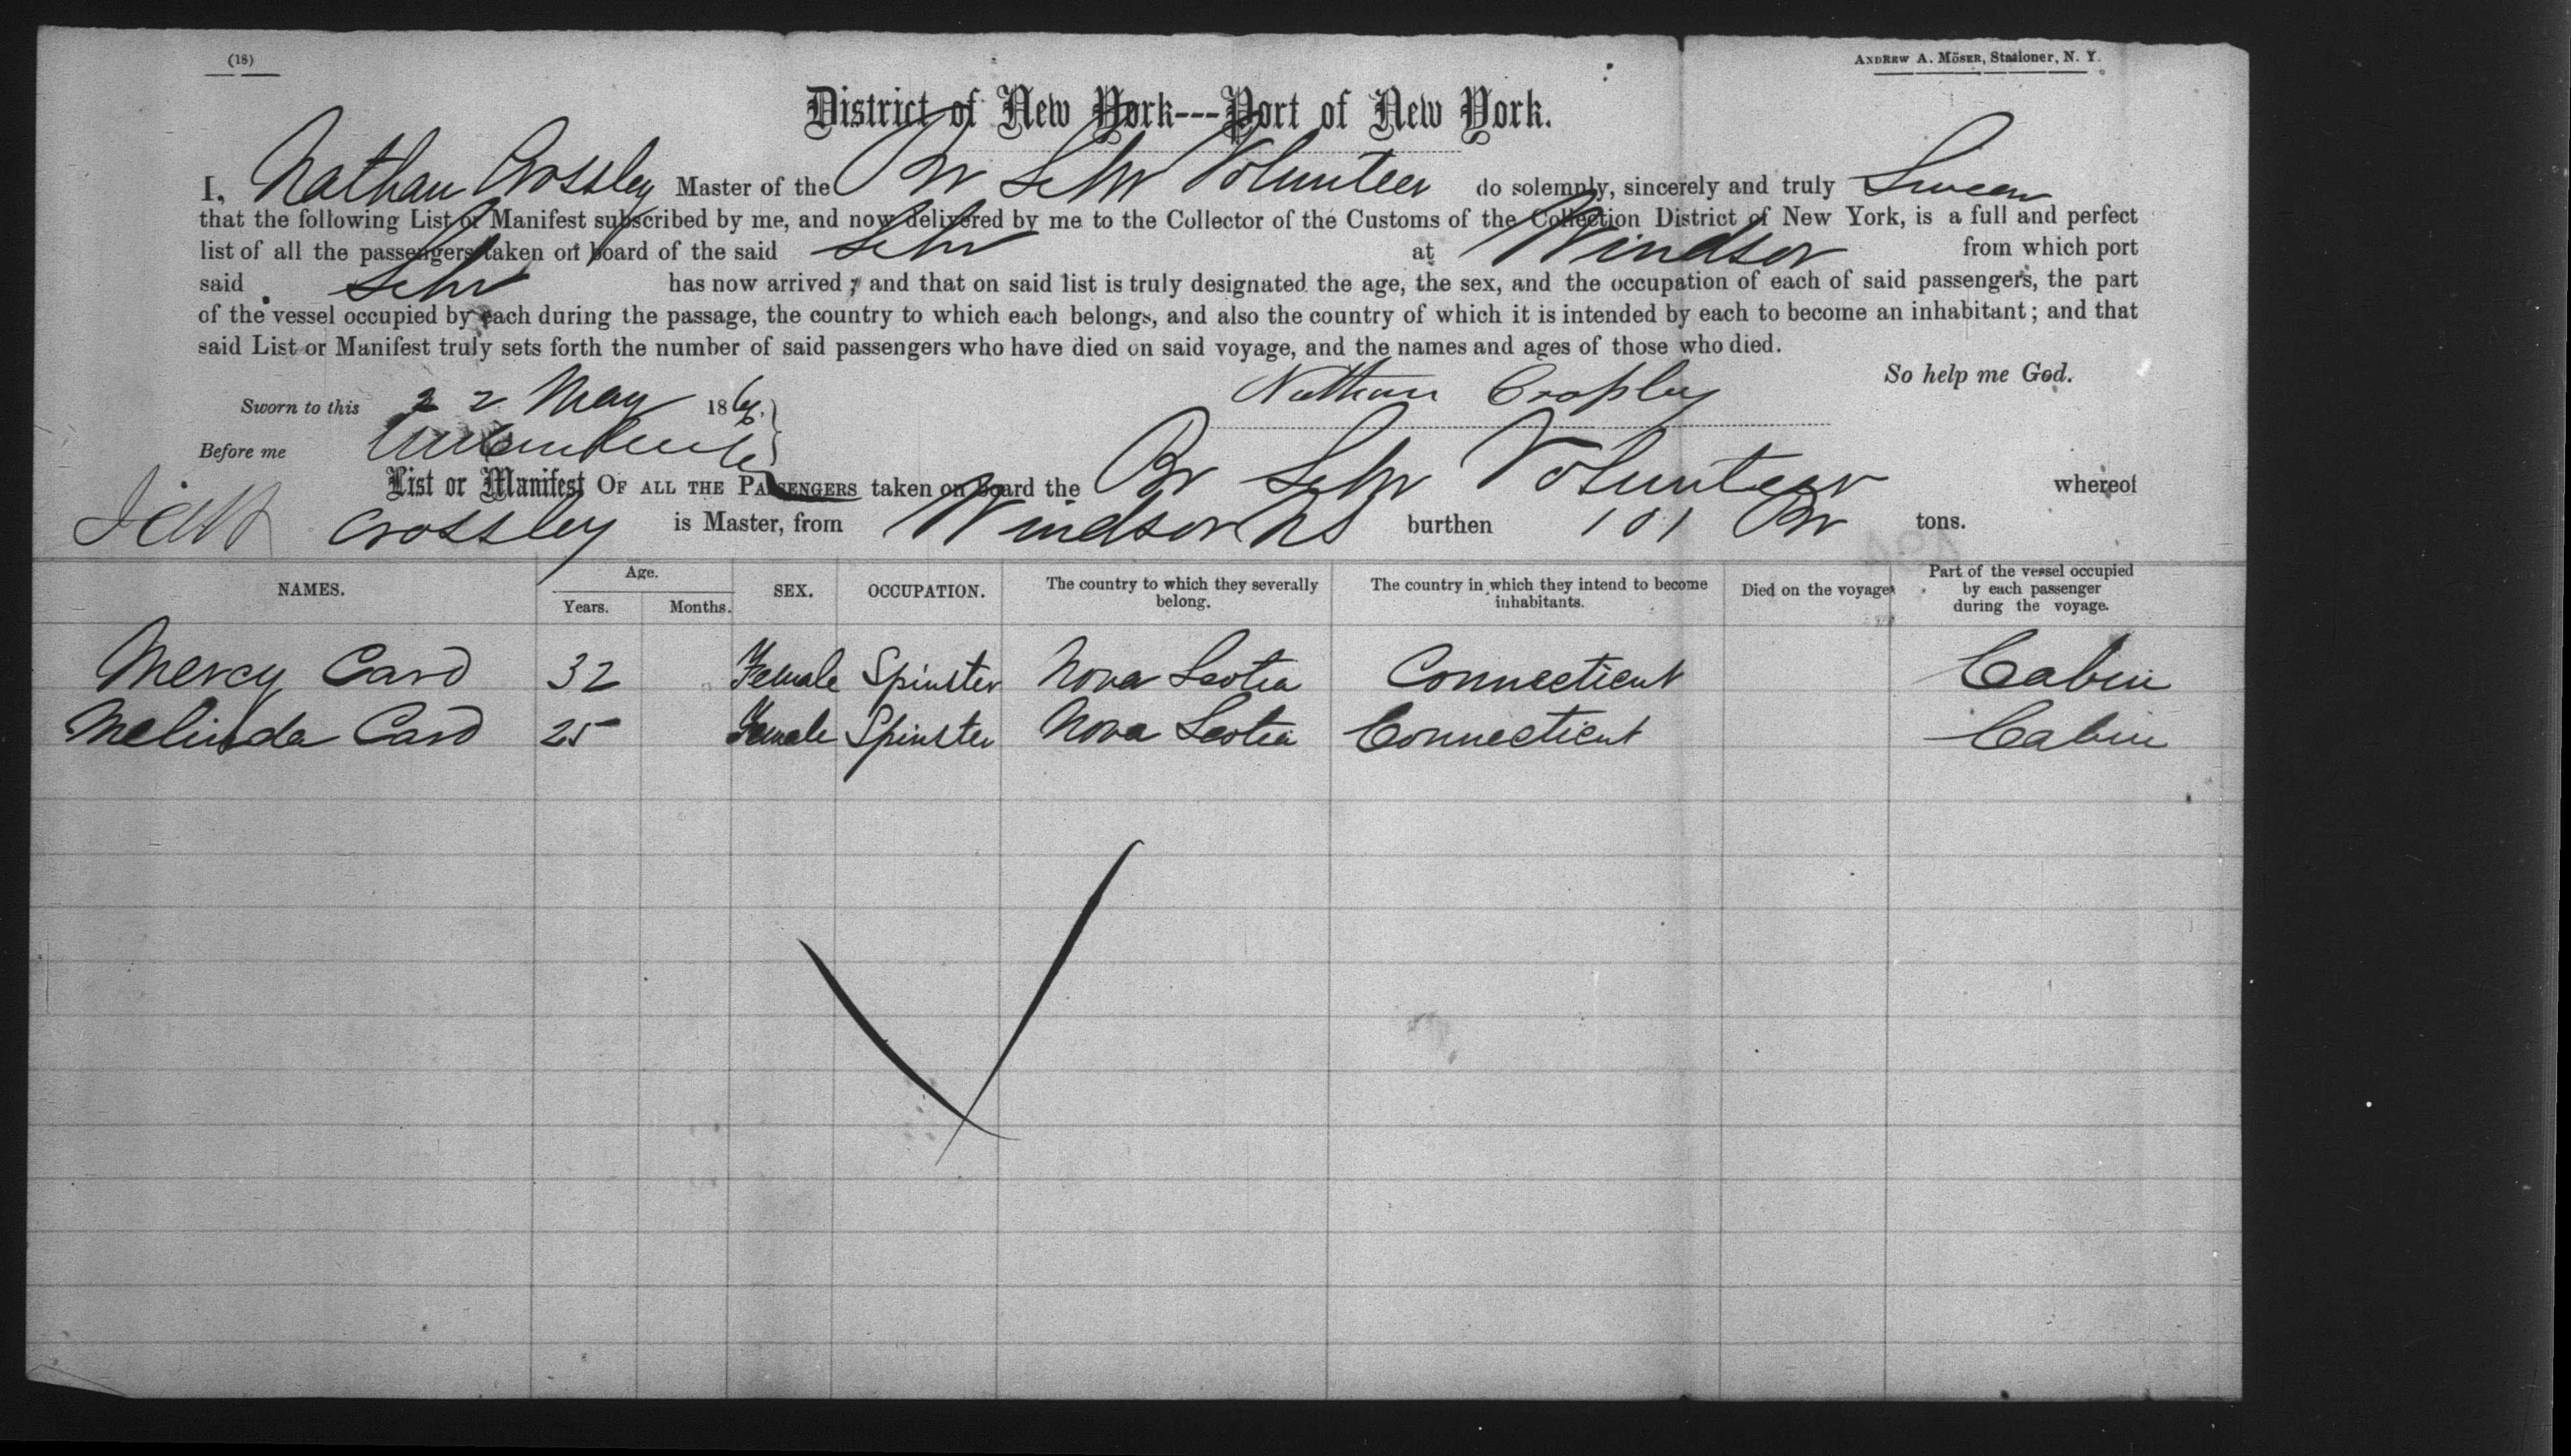 (18)
ANDREW A. MÖSER, Stationer, N. Y.
District of New York---Port of New York.
I, Nathan Crossley Master of the Br Schr Volunteer do solemnly, sincerely and truly Swear
that the following List or Manifest subscribed by me, and now delivered by me to the Collector of the Customs of the Collection District of New York, is a full and perfect
list of all the passengers taken on board of the said Schr at Windsor from which port
said Schr has now arrived; and that on said list is truly designated the age, the sex, and the occupation of each of said passengers, the part
of the vessel occupied by each during the passage, the country to which each belongs, and also the country of which it is intended by each to become an inhabitant; and that
said List or Manifest truly sets forth the number of said passengers who have died on said voyage, and the names and ages of those who died.
So help me God.
Sworn to this 22 May 186
Nathan Crossley
Before me
List or Manifest OF ALL THE PASSENGERS taken on board the Br Schr Volunteer whereof
Crossley is Master, from Windsor NS burthen 101 Br tons.
NAMES. Age. Years. Months. SEX. OCCUPATION. The country to which they severally belong. The country in which they intend to become inhabitants. Died on the voyage Part of the vessel occupied by each passenger during the voyage.
Mercy Card 32 Female Spinster Nova Scotia Connecticut Cabin
Melinda Card 25 Female Spinster Nova Scotia Connecticut Cabin